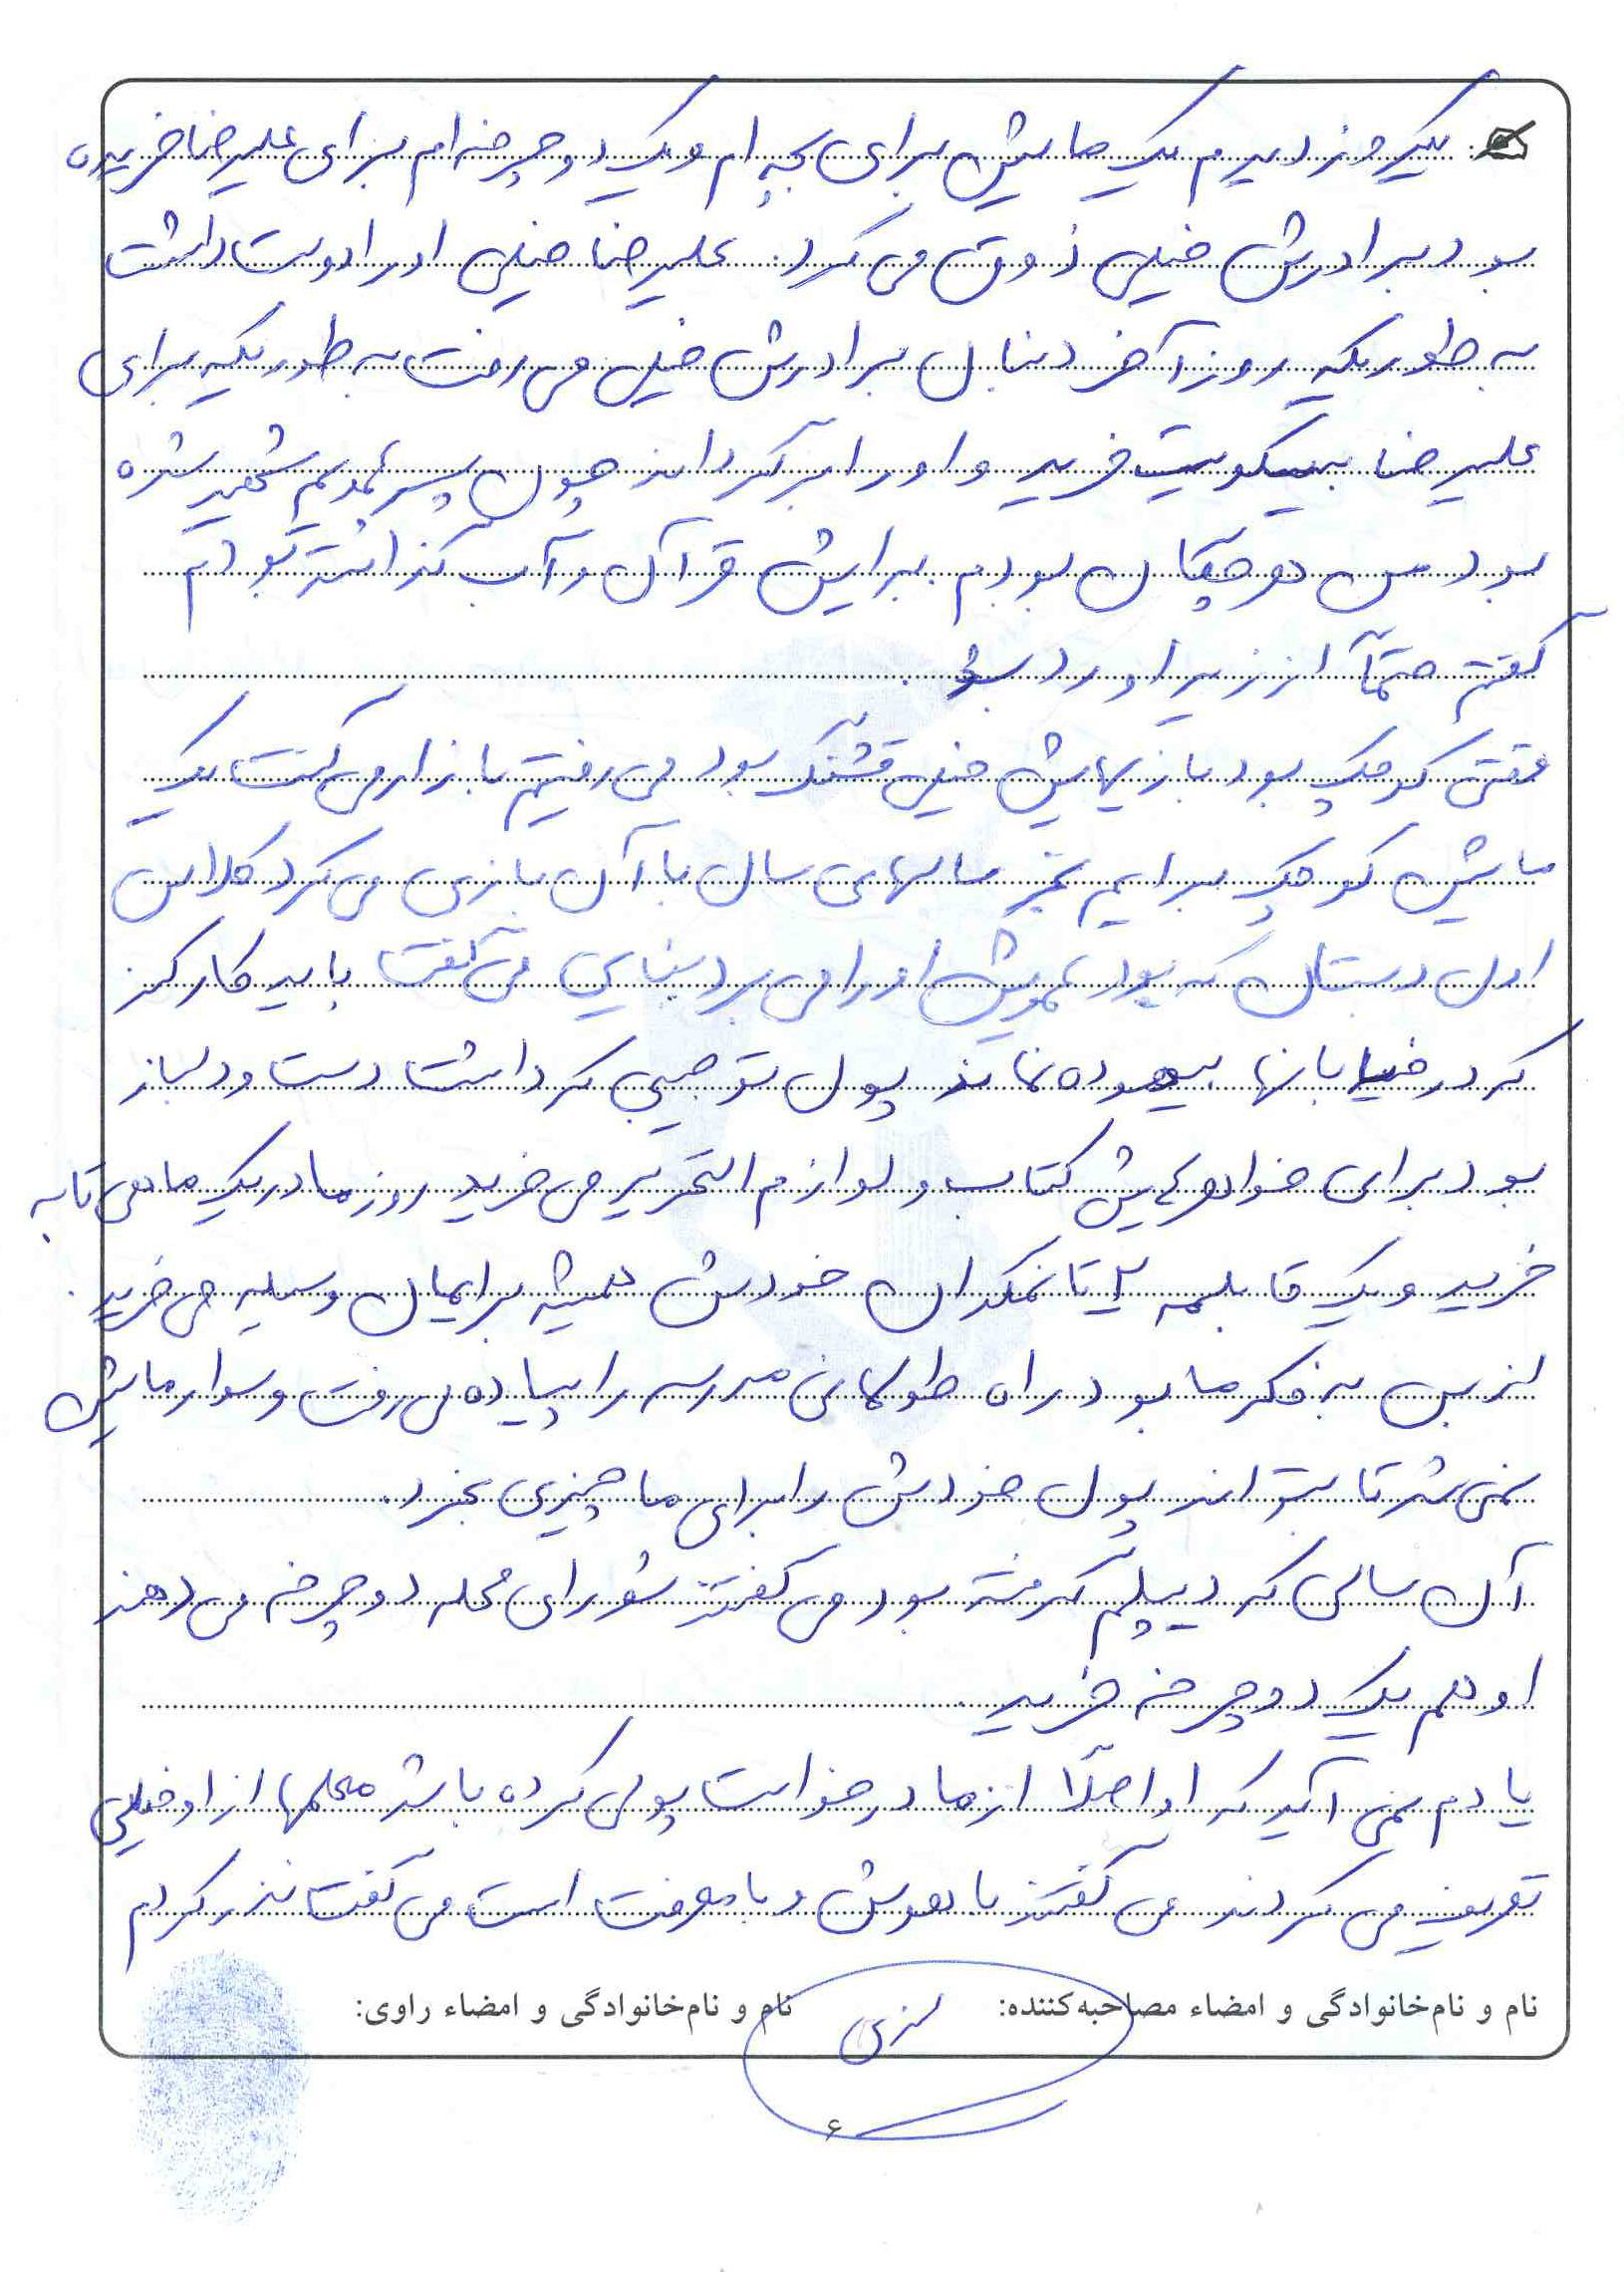 یک روز دیدم یک ماشین برای بچه ام و یک دوچرخه ام برای علیرضا خریده
بود برادرش خیلی ذوق می کرد. علیرضا خیلی او را دوست داشت
به طوریکه روز آخر دنبال برادرش خیلی می رفت به طوریکه برای
علیرضا بیسکویت خرید و او را برگرداند چون پسر عمویم شهید شده
بود من هرچکان بودم. برایش قرآن و آب گذاشته بودم
گفتم حتماً از زیر او رد شو.
وقتی کوچک بود بازیهایش خیلی قشنگ بود می رفتیم بازار می گفت یک
ماشین کوچک برایم بخر سالهای سال با آن بازی می کرد کلاس
اول دبستان که بود عمویش او را می برد بنایی می گفت باید کار کند
که در خیابانها بیهوده نماند پول تو جیبی که داشت دست و دلباز
بود برای خواهرهایش کتاب و لوازم التحریر می خرید روز مادر یک ماهی تابه
خرید و یک قابلمه تا نمکدان خودش همیشه برایمان وسیله می خرید.
از بس به فکر ما بود راه طولانی مدرسه را پیاده می رفت و سوار ماشین
نمی شد تا بتواند پول خودش را برای ما چیزی بخرد.
آن سالی که دیپلم گرفته بود می گفتند شورای محله دوچرخه می دهند
او هم یک دوچرخه خرید.
یادم نمی آید که او اصلاً از ما درخواست پولی کرده باشد معلمها از او خیلی
تعریف می کردند می گفتند باهوش و با معرفت است می گفت نذر کردم
نام و نام‌خانوادگی و امضاء مصاحبه‌کننده: نام و نام‌خانوادگی و امضاء راوی:
۶